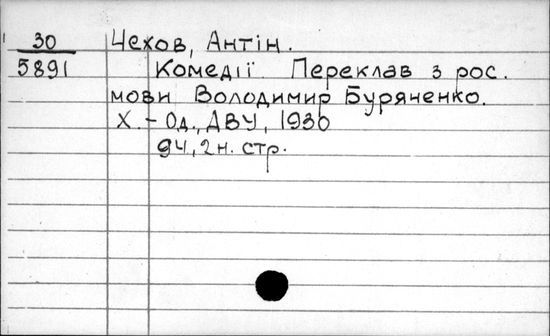 30 Чехов, Антін.
5891 Комедії Переклав з рос.
мови Володимир Буряченко.
Х.–Од., ДВУ, 1930
94, 2 н. стр.